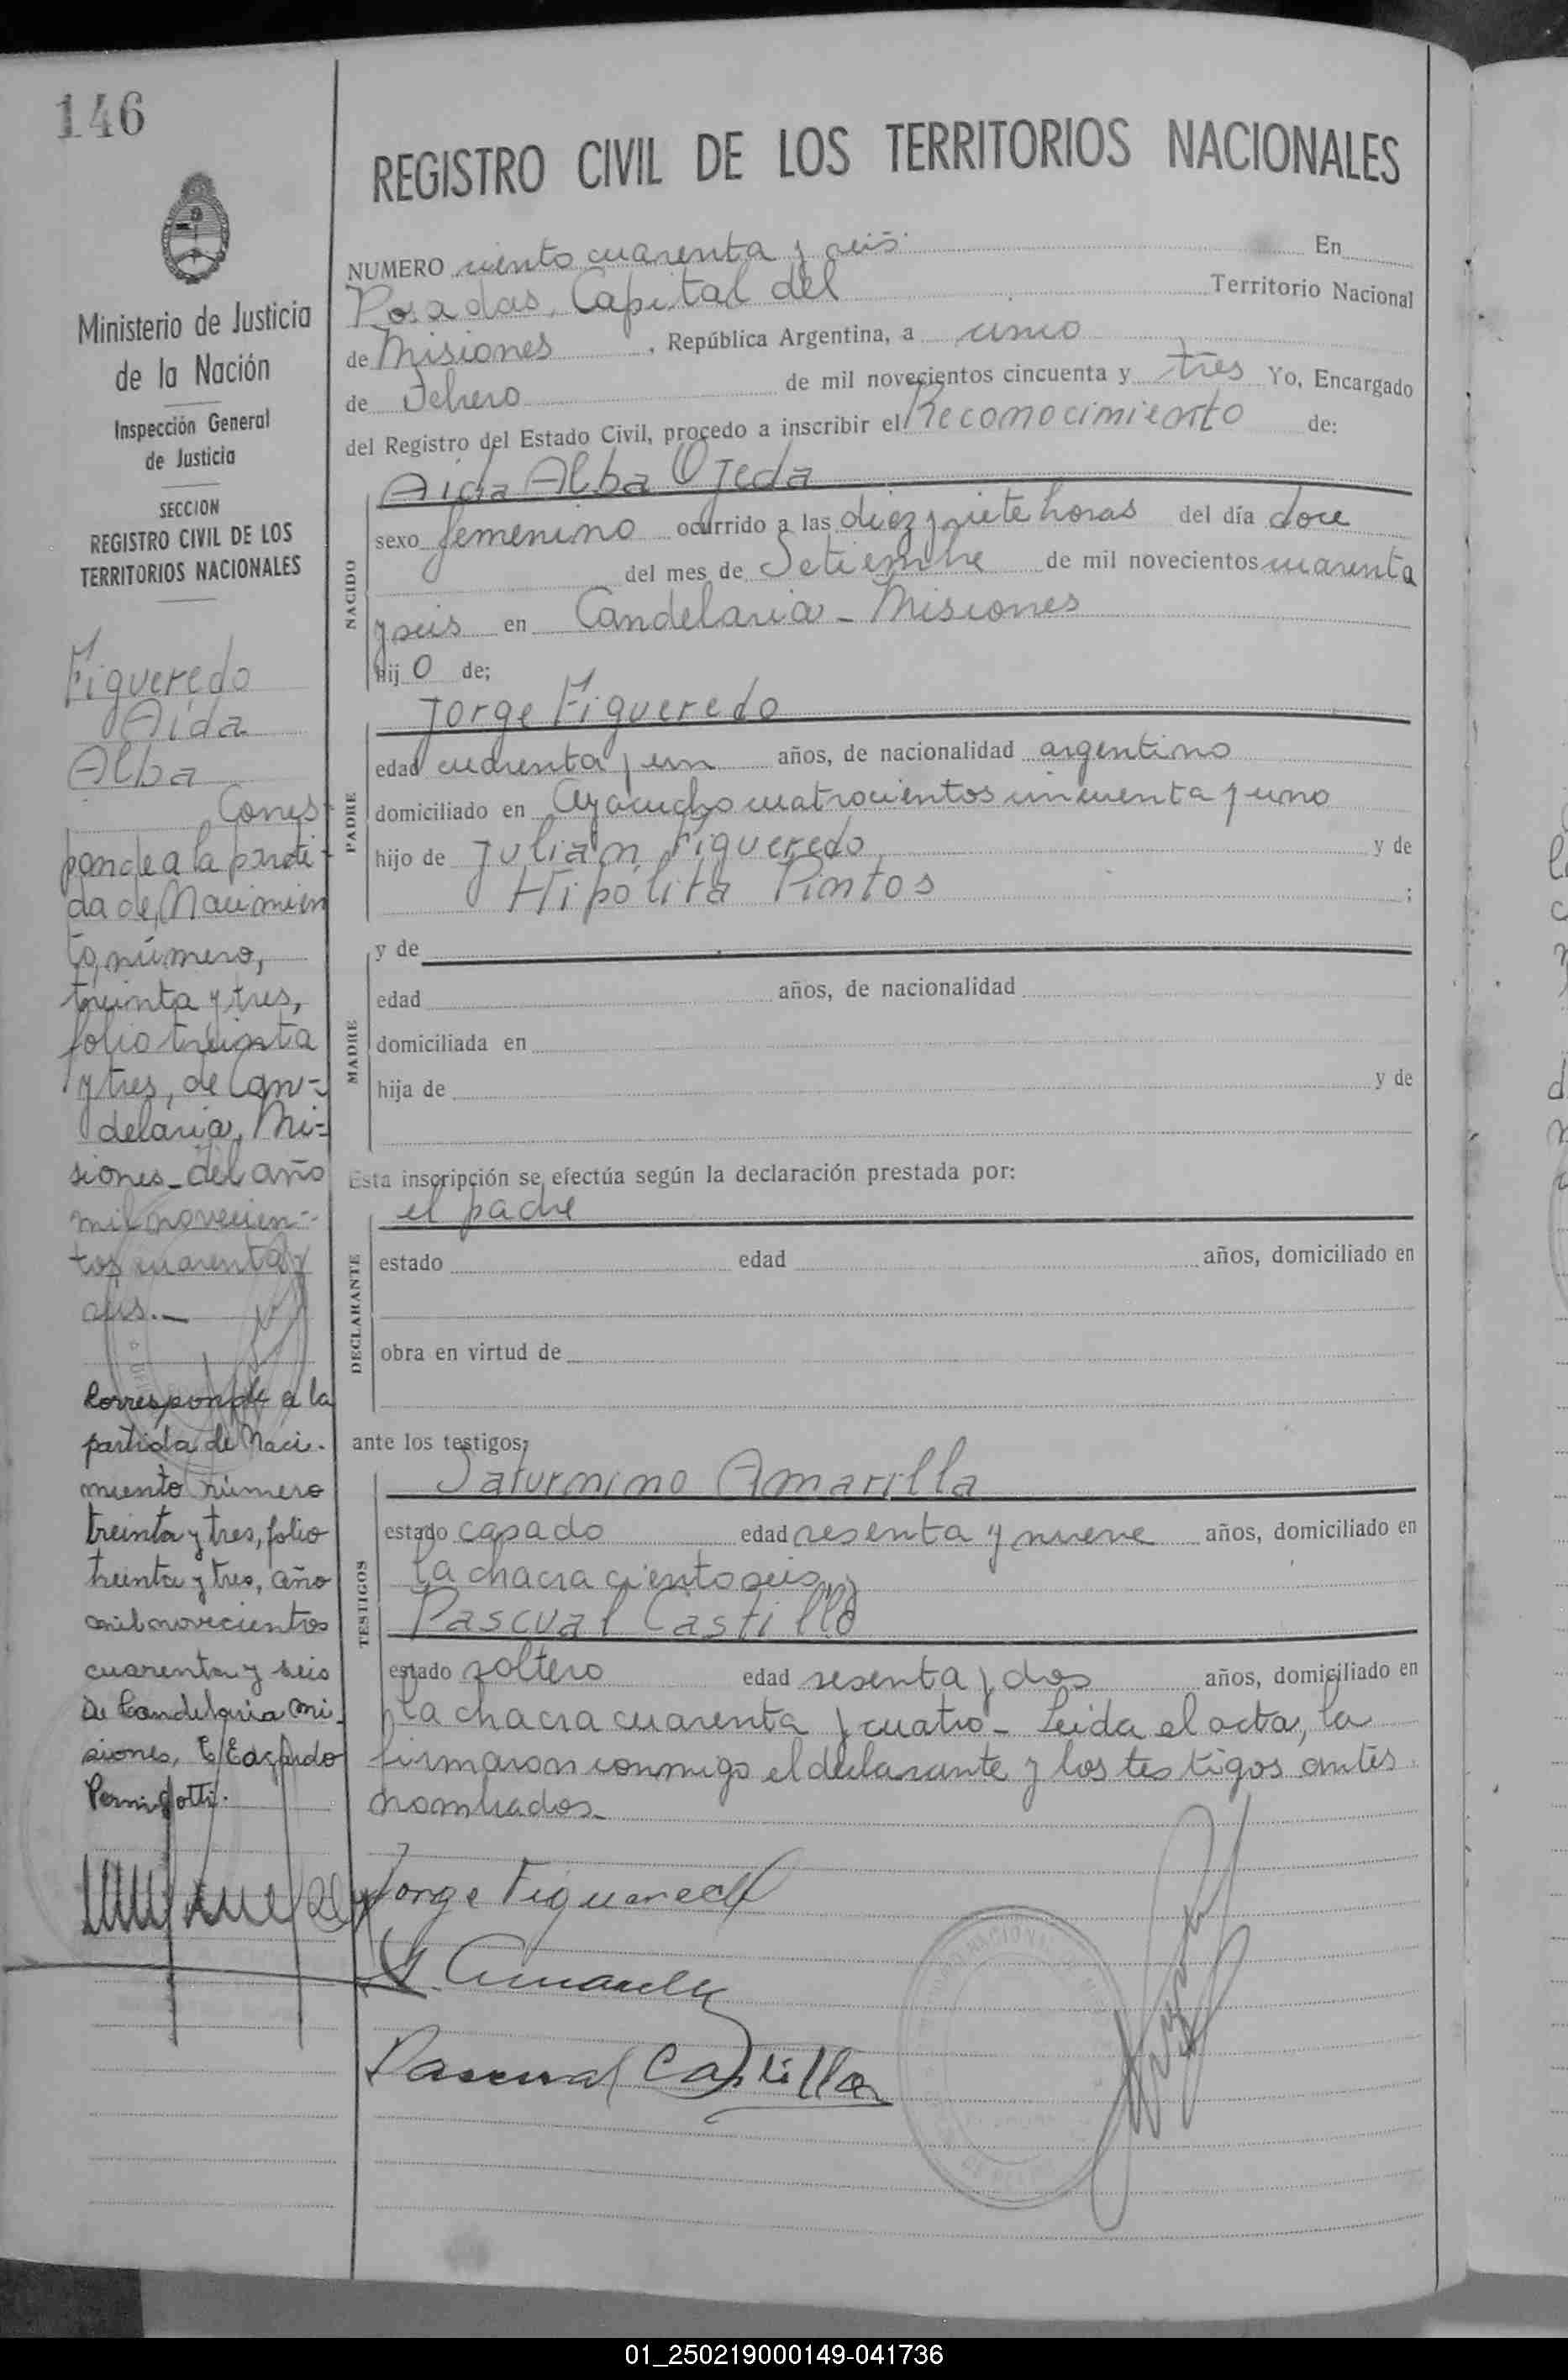 146
Ministerio de Justicia
de la Nación
Inspección General
de Justicia
SECCION
REGISTRO CIVIL DE LOS
TERRITORIOS NACIONALES
Figueredo
Aida
Alba
Corres-
ponde a la parti-
da de Nacimien
to, número,
treinta y tres,
folio treinta
y tres, de Can-
delaria, Mi-
siones_ del año
mil novecien-
tos cuarenta y
seis._
Corresponde a la
partida de Naci-
miento número
treinta y tres, folio
treinta y tres, año
mil novecientos
cuarenta y seis
De Candelaria Mi-
siones, E/Edgardo
Pernigotti.
REGISTRO CIVIL DE LOS TERRITORIOS NACIONALES
NUMERO ciento cuarenta y seis En
Posadas, Capital del Territorio Nacional
de Misiones , República Argentina, a cinco
de Febrero de mil novecientos cincuenta y tres Yo, Encargado
del Registro del Estado Civil, procedo a inscribir el Reconocimiento de:
NACIDO
Aida Alba Ojeda
sexo femenino ocurrido a las diez y siete horas del día doce
del mes de Setiembre de mil novecientos cuarenta
y seis en Candelaria - Misiones
hij o de;
PADRE
Jorge Figueredo
edad cuarenta y un años, de nacionalidad argentino
domiciliado en Ayacucho cuatrocientos cincuenta y uno
hijo de Julián Figueredo y de
Hipólita Pintos ;
MADRE
y de
edad años, de nacionalidad
domiciliada en
hija de y de
Esta inscripción se efectúa según la declaración prestada por:
DECLARANTE
el padre
estado edad años, domiciliado en
obra en virtud de
ante los testigos:
TESTIGOS
Saturnino Amarilla
estado casado edad sesenta y nueve años, domiciliado en
la chacra ciento seis, y
Pascual Castillo
estado soltero edad sesenta y dos años, domiciliado en
la chacra cuarenta y cuatro - Leida el acta, la
firmaron conmigo el declarante y los testigos antes
nombrados.
Jorge Figueredo
S. Amarilla
Pascual Castillo
01_250219000149-041736